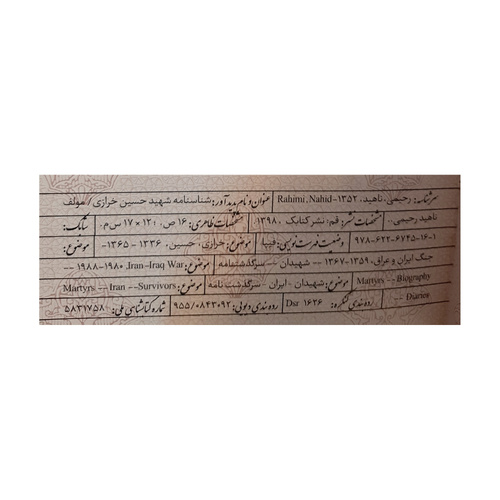 سرشناسه: رحیمی، ناهید، ۱۳۵۲-Rahimi, Nahid عنوان و نام پدیدآور: شناسنامه شهید حسین خرازی / مولف
ناهید رحیمی. مشخصات نشر: قم: نشر کتابک ، ۱۳۹۸. مشخصات ظاهری: ۱۶ ص. ؛ ۱۲ × ۱۷ س م. شابک:
۹۷۸-۶۲۲-۶۷۴۵-۱۶-۱ وضعیت فهرست نویسی: فیپا. موضوع: خرازی، حسین، ۱۳۳۶ - ۱۳۶۵- موضوع:
جنگ ایران و عراق، ۱۳۵۹-۱۳۶۷ -- شهیدان -- سرگذشتنامه موضوع: Iran-Iraq War, ۱۹۸۰-۱۹۸۸ --
Martyrs -- Biography موضوع: شهیدان - ایران - سرگذشت نامه Martyrs -- Iran --Survivors
-- Diaries رده بندی کنگره: ۱۶۲۶ Dsr رده بندی دیویی: ۹۵۵/۰۸۴۳۰۹۲ شماره کتابشناسی ملی: ۵۸۳۱۷۵۸